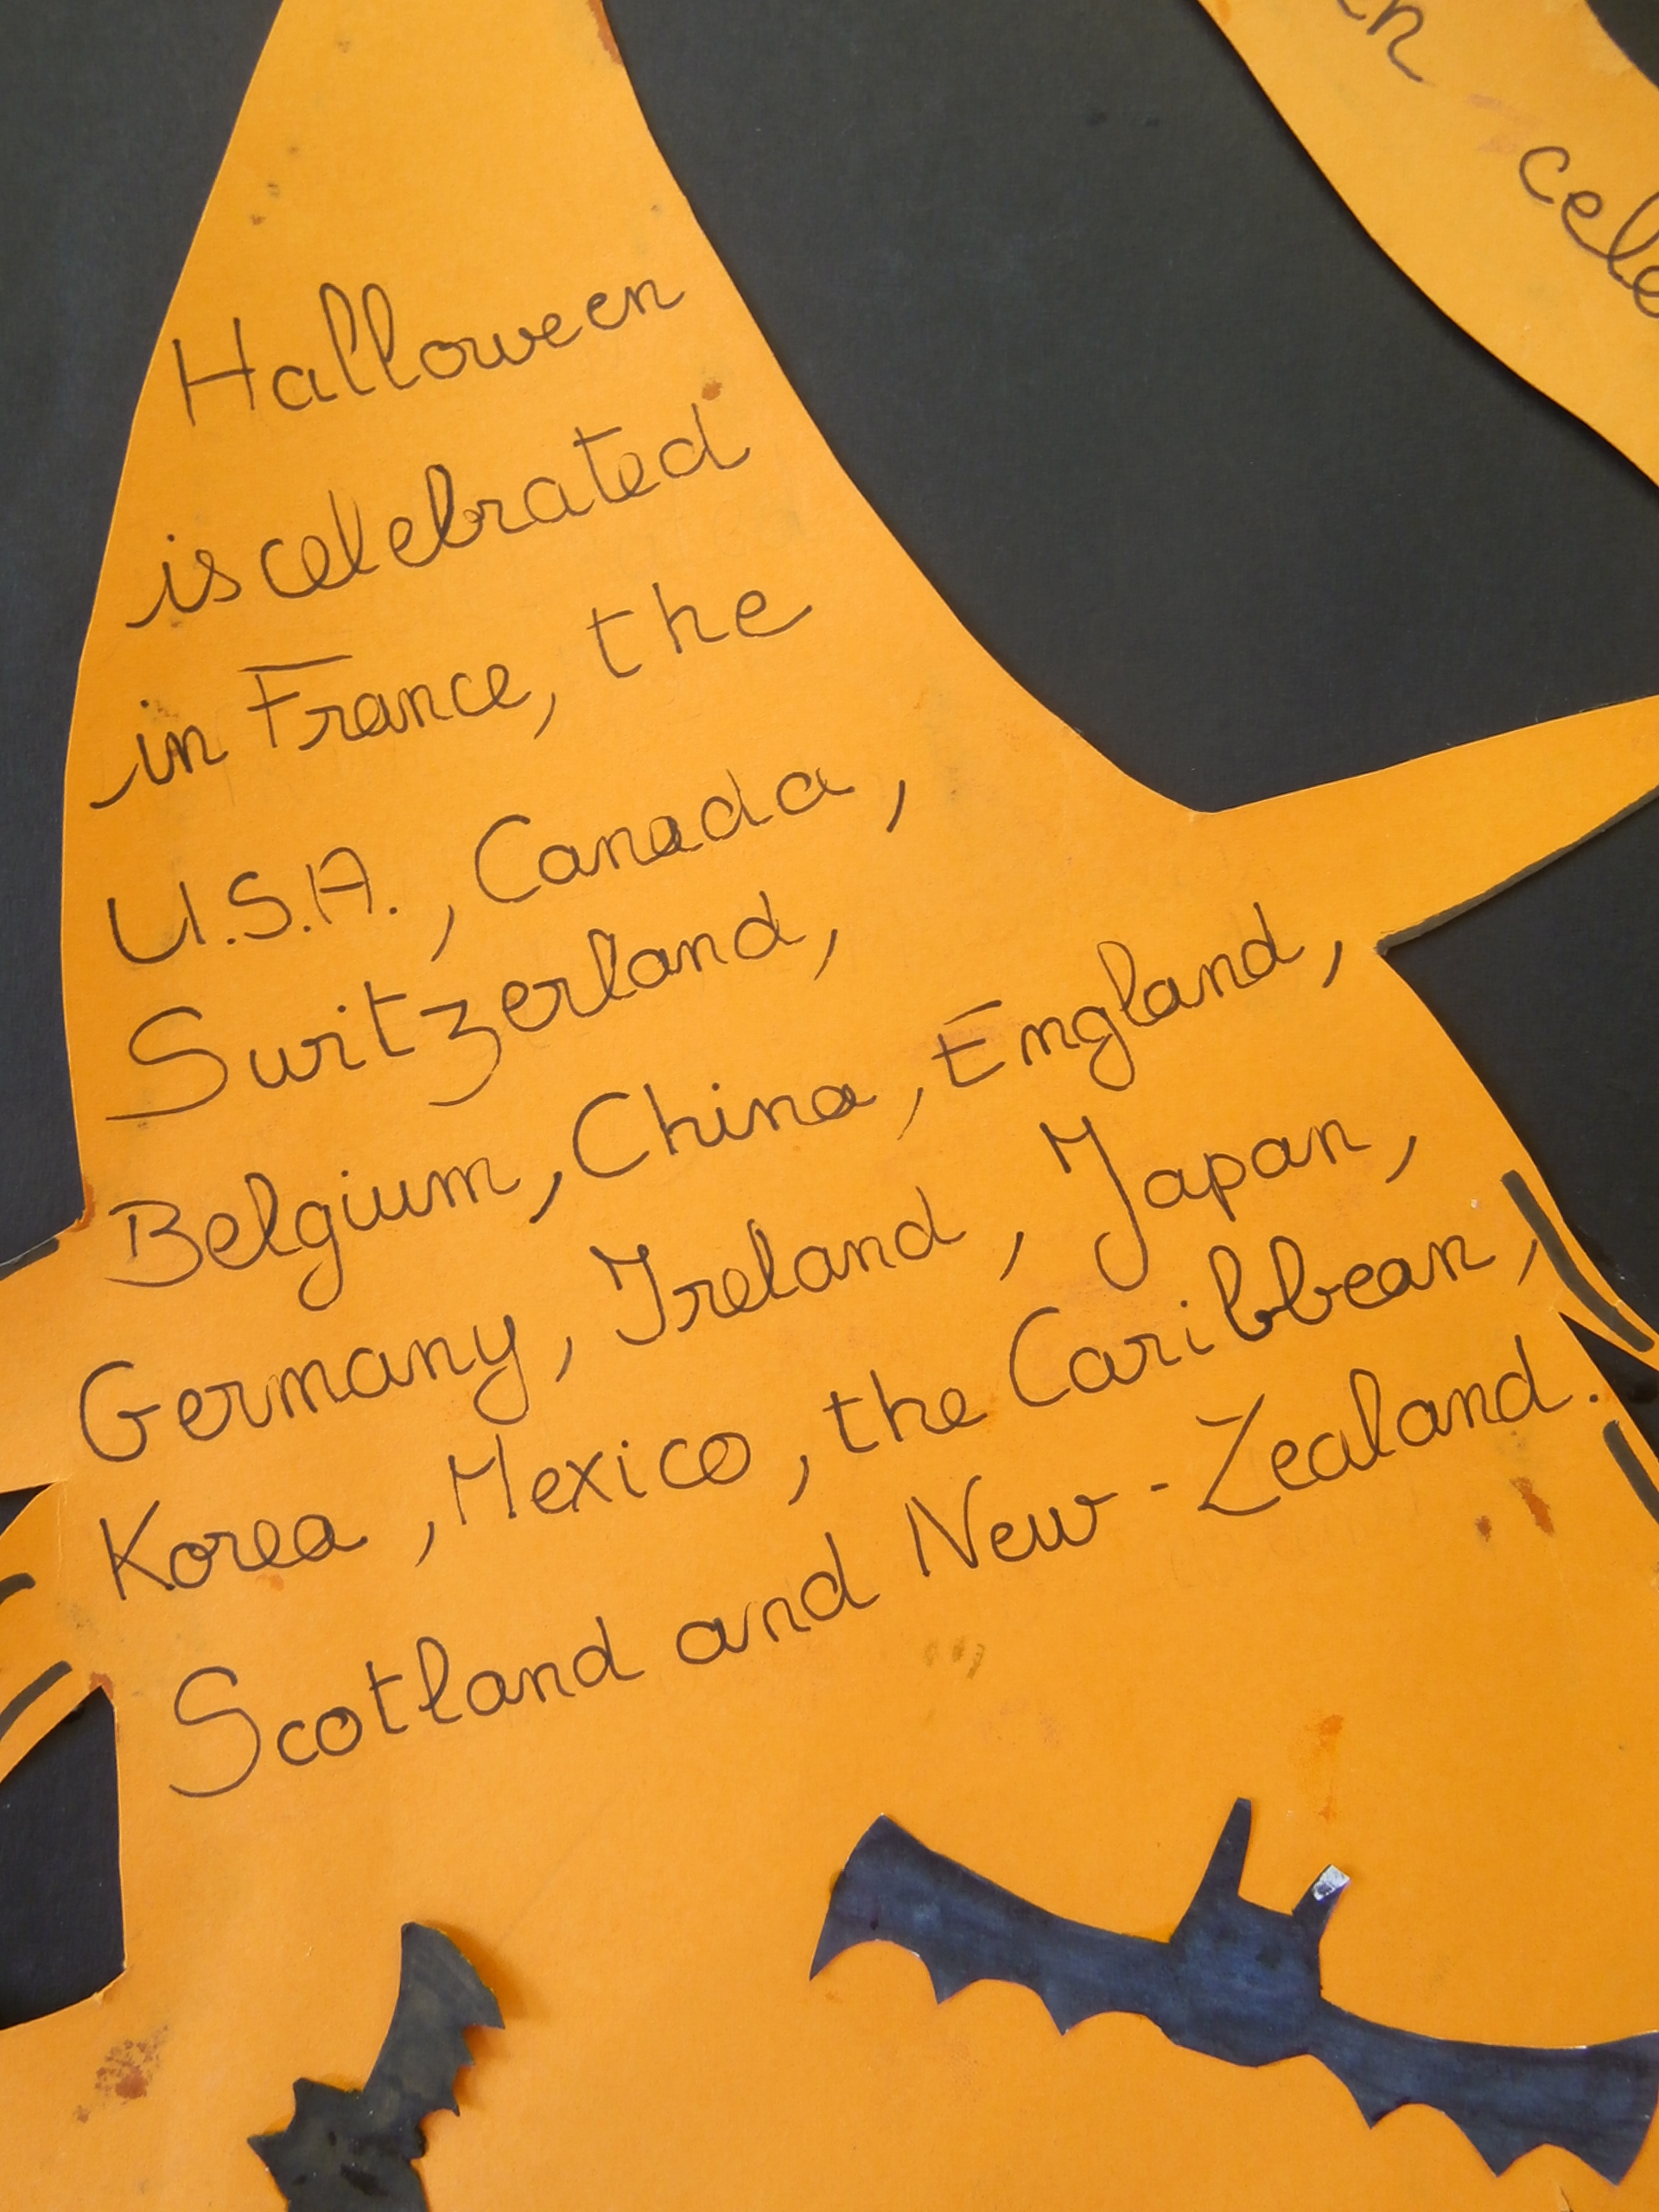 Halloween
is celebrated
in France, the
U.S.A., Canada,
Switzerland,
Belgium, China, England,
Germany, Ireland, Japan,
Korea, Mexico, the Caribbean,
Scotland and New-Zealand.